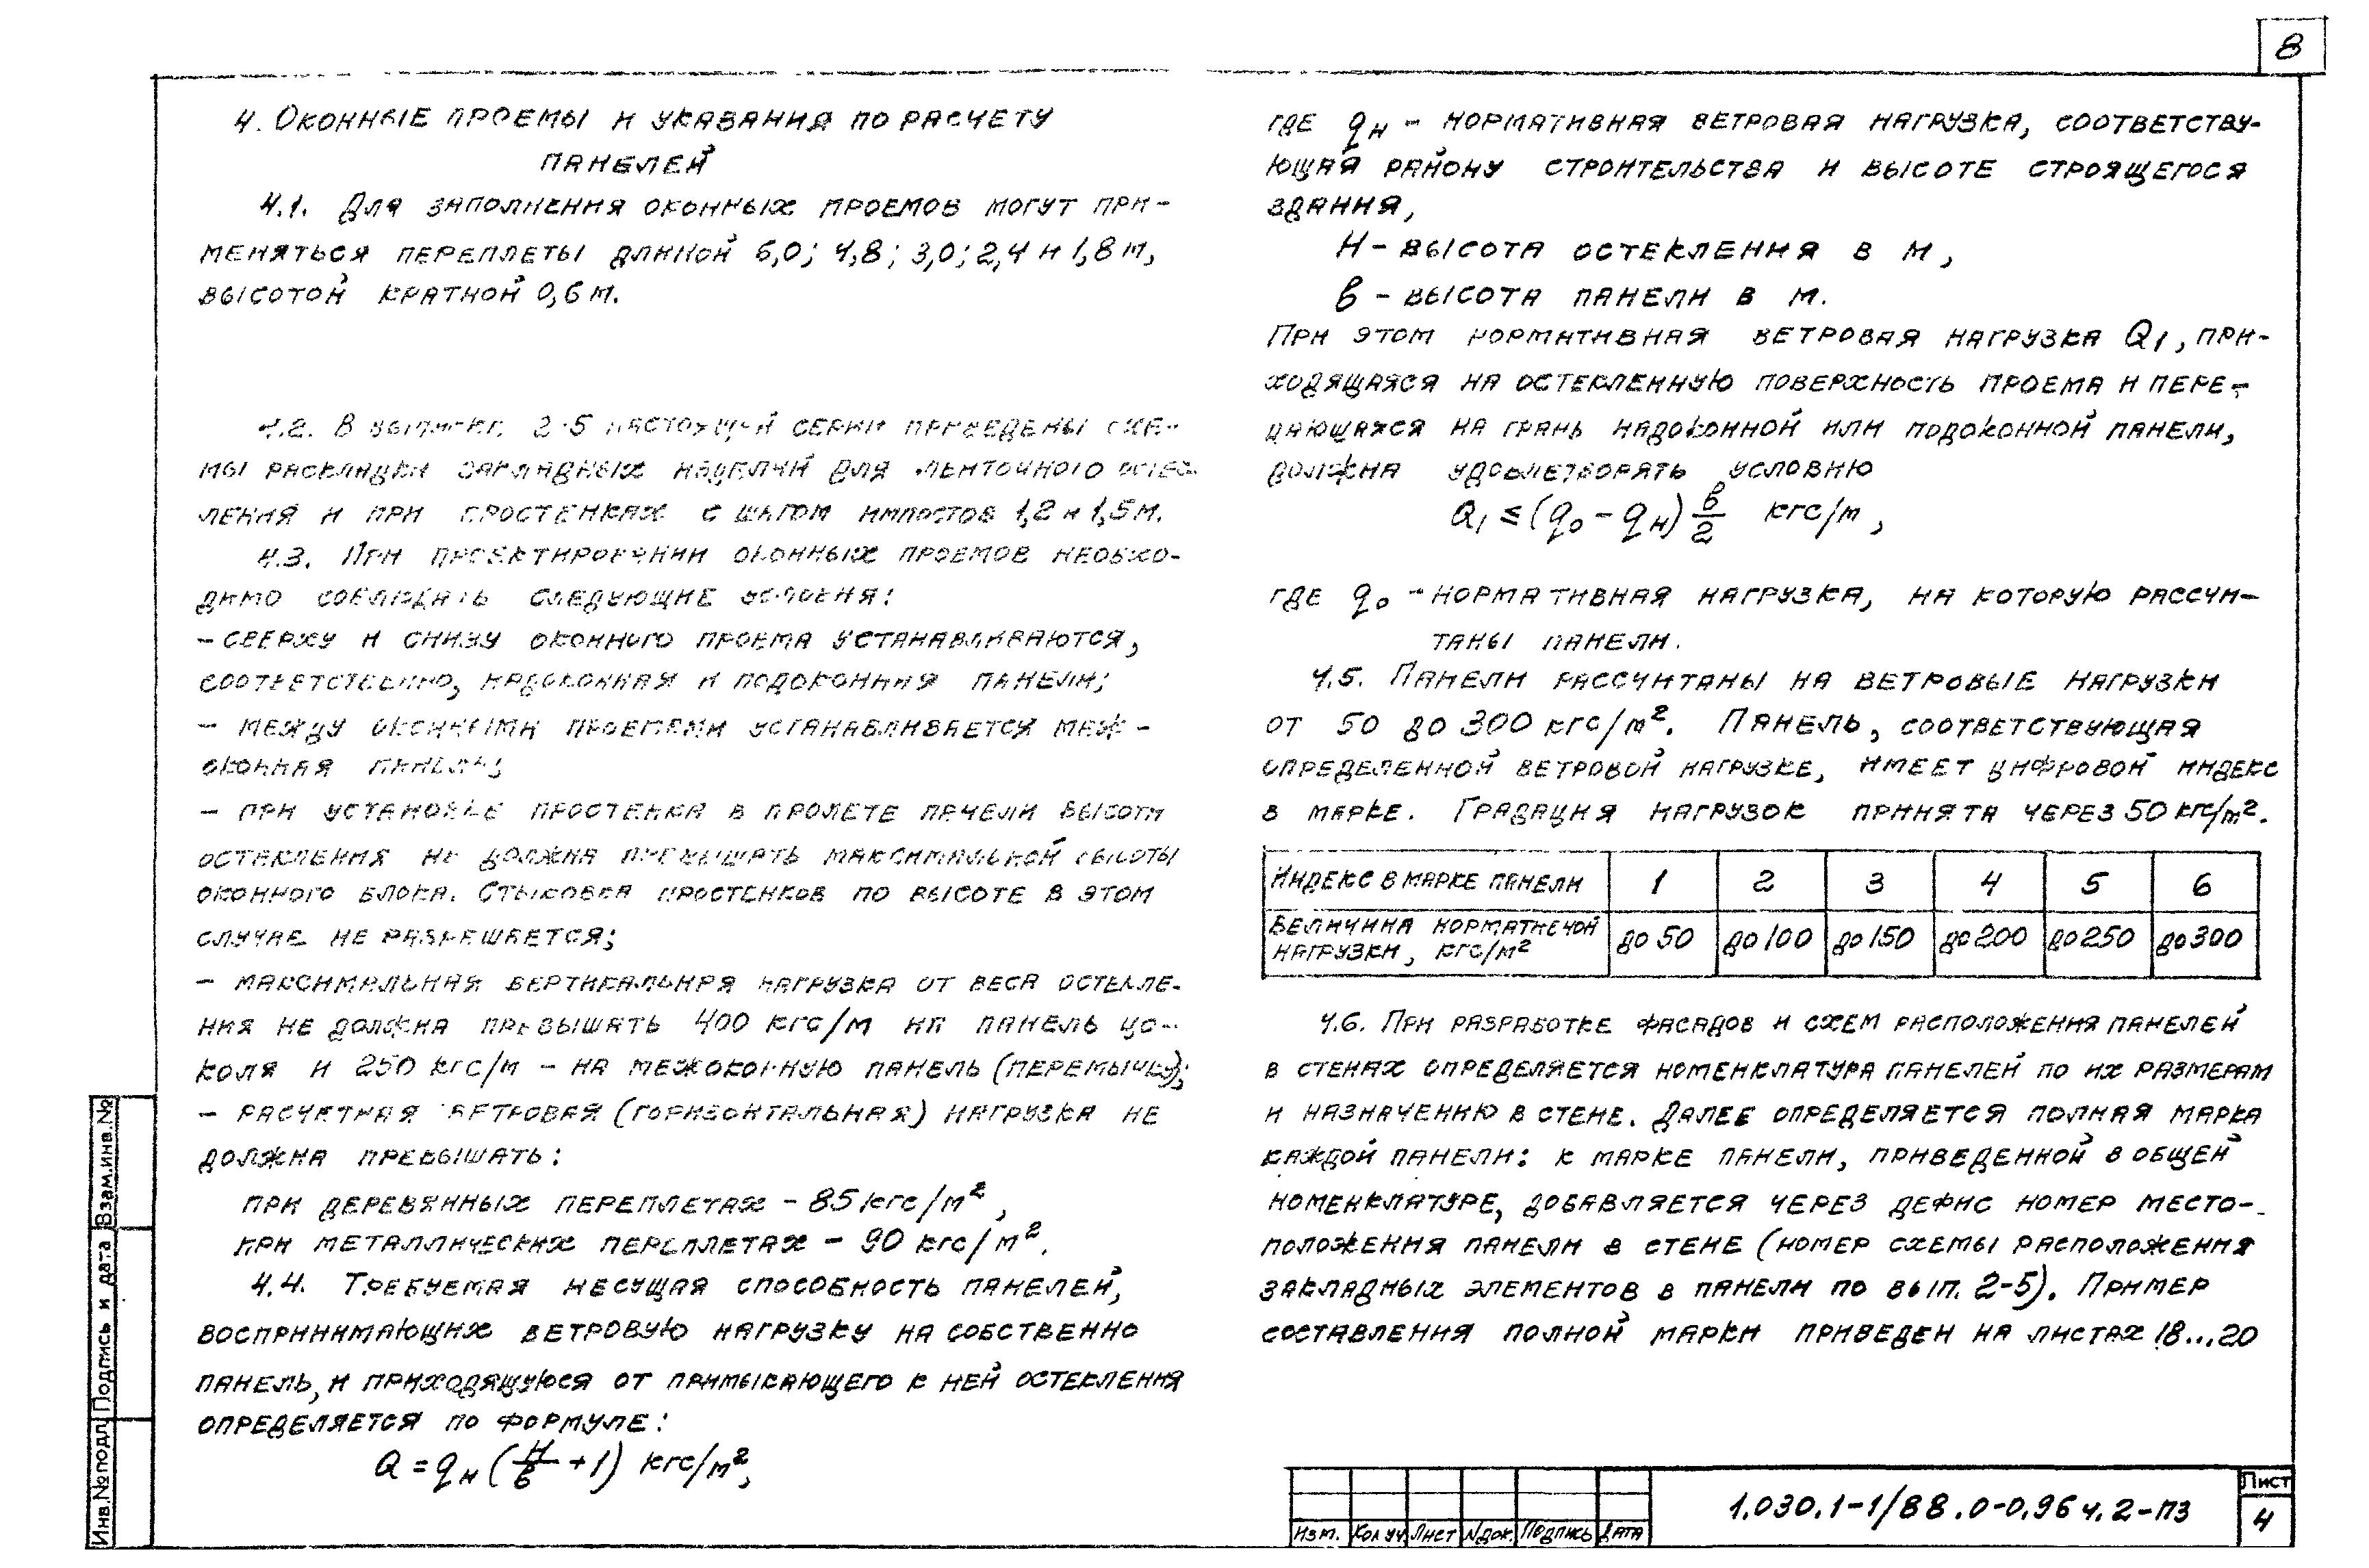 8
4. Оконные проемы и указания по расчету
панелей
4.1. Для заполнения оконных проемов могут при-
меняться переплеты длиной 6,0; 4,8; 3,0; 2,4 и 1,8 м,
высотой кратной 0,6 м.
4.2. В выпуске 2-5 настоящей серии приведены схе-
мы раскладки закладных изделий для ленточного остек-
ления и при простенках с шагом импостов 1,2 и 1,5 м.
4.3. При проектировании оконных проемов необхо-
димо соблюдать следующие условия:
- сверху и снизу оконного проема устанавливаются,
соответственно, надоконная и подоконная панели;
- между оконными проемами устанавливается меж-
оконная панель;
- при установке простенка в пролете панели высота
остекления не должна превышать максимальной высоты
оконного блока. Стыковка простенков по высоте в этом
случае не разрешается;
- максимальная вертикальная нагрузка от веса остекле-
ния не должна превышать 400 кгс/м на панель цо-
коля и 250 кгс/м - на межоконную панель (перемычку);
- расчетная ветровая (горизонтальная) нагрузка не
должна превышать:
при деревянных переплетах - 85 кгс/м²,
при металлических переплетах - 90 кгс/м².
4.4. Требуемая несущая способность панелей,
воспринимающих ветровую нагрузку на собственно
панель, и приходящуюся от примыкающего к ней остекления
определяется по формуле:
Q = qн (H/в + 1) кгс/м²,
где qн - нормативная ветровая нагрузка, соответству-
ющая району строительства и высоте строящегося
здания,
H - высота остекления в м,
в - высота панели в м.
При этом нормативная ветровая нагрузка Q1, при-
ходящаяся на остекленную поверхность проема и пере-
дающаяся на грань надоконной или подоконной панели,
должна удовлетворять условию
Q1 ≤ (q0 - qн) в/2 кгс/м,
где q0 - нормативная нагрузка, на которую рассчи-
таны панели.
4.5. Панели рассчитаны на ветровые нагрузки
от 50 до 300 кгс/м². Панель, соответствующая
определенной ветровой нагрузке, имеет цифровой индекс
в марке. Градация нагрузок принята через 50 кгс/м².
Индекс в марке панели 1 2 3 4 5 6
Величина нормативной
нагрузки, кгс/м² до 50 до 100 до 150 до 200 до 250 до 300
4.6. При разработке фасадов и схем расположения панелей
в стенах определяется номенклатура панелей по их размерам
и назначению в стене. Далее определяется полная марка
каждой панели: к марке панели, приведенной в общей
номенклатуре, добавляется через дефис номер место-
положения панели в стене (номер схемы расположения
закладных элементов в панели по вып. 2-5). Пример
составления полной марки приведен на листах 18...20
Взам.инв.№
Подпись и дата
Инв.№подл.
Изм. Кол уч. Лист №док. Подпись Дата
1.030.1-1/88.0-0.96 ч.2-ПЗ
Лист
4